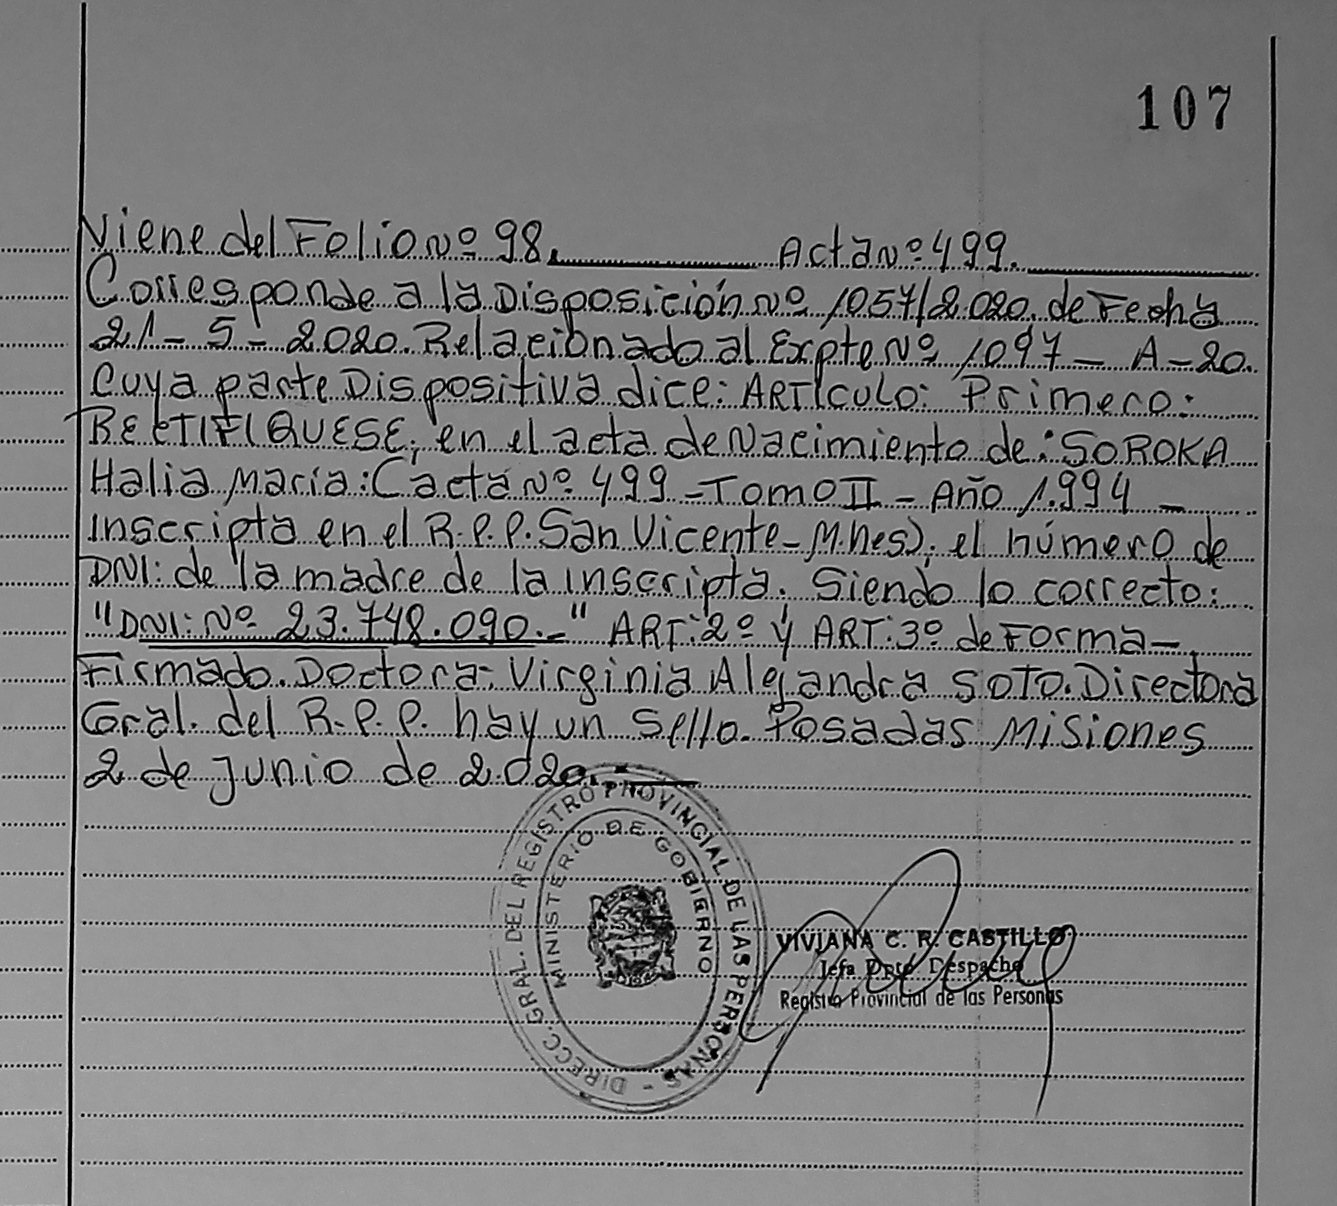 107
Viene del Folio Nº 98. Acta Nº 499.
Corresponde a la Disposición Nº 1057/2.020. de Fecha
21 - 5 - 2.020. Relacionado al Expte Nº 1097 - A - 20.
Cuya parte Dispositiva dice: ARTÍCULO: Primero:
RECTIFIQUESE; en el acta de Nacimiento de: SOROKA
Halia María: (acta Nº 499 - Tomo II - Año 1.994 -
Inscripta en el R.P.P. San Vicente - Mnes); el número de
DNI: de la madre de la inscripta. Siendo lo correcto:
"DNI: Nº 23.748.090.-" ART: 2º y ART: 3º de Forma -
Firmado. Doctora: Virginia Alejandra SOTO. Directora
Gral. del R.P.P. hay un Sello. Posadas Misiones
2 de Junio de 2.020.
DIRECC. GRAL. DEL REGISTRO PROVINCIAL DE LAS PERSONAS -
MINISTERIO DE GOBIERNO
VIVIANA C. R. CASTILLO
Jefa Dpto Despacho
Registro Provincial de las Personas